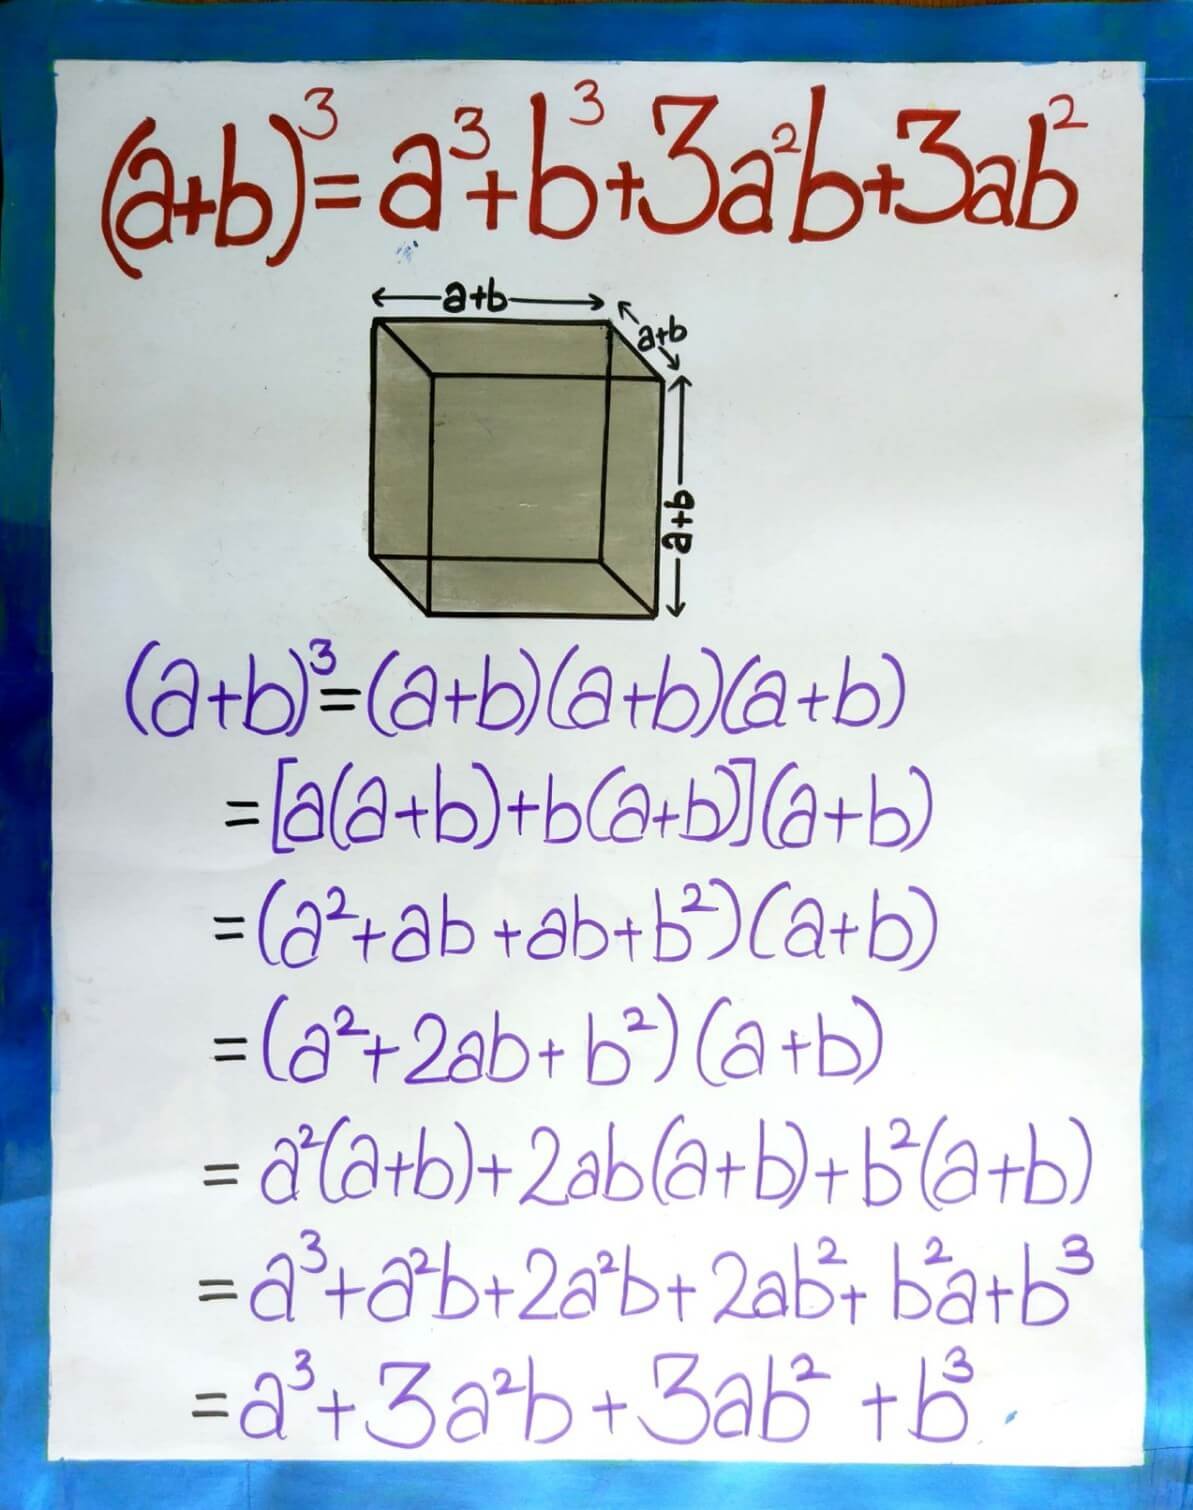 (a+b)³=a³+b³+3a²b+3ab²
a+b
a+b
a+b
(a+b)³=(a+b)(a+b)(a+b)
=[a(a+b)+b(a+b)](a+b)
=(a²+ab+ab+b²)(a+b)
=(a²+2ab+b²)(a+b)
=a²(a+b)+2ab(a+b)+b²(a+b)
=a³+a²b+2a²b+2ab²+b²a+b³
=a³+3a²b+3ab²+b³.